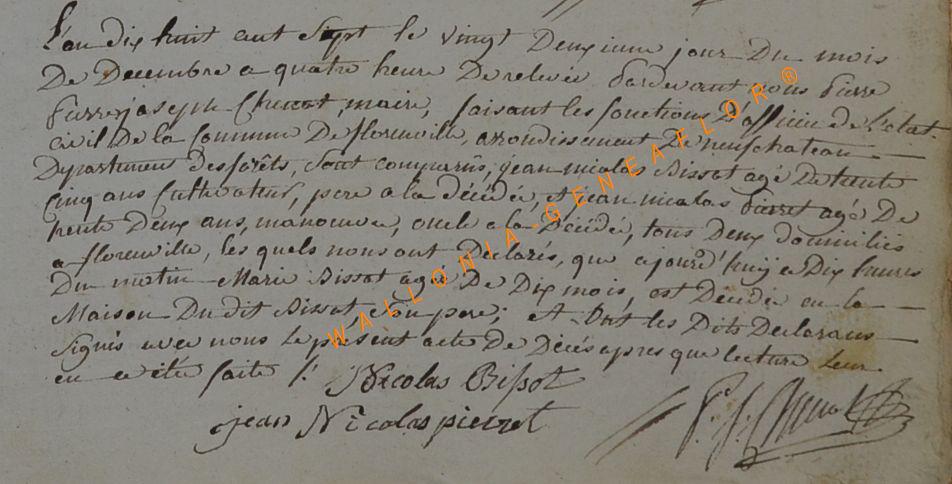 L'an dix huit cent Sept le vingt Deuxieme jour Du mois
De Decembre a quatre heure De relevée Pardevant nous Pierre
Pierre joseph maire, faisant les fonctions D'officier de L'etat.
civil De la Commune De florenville, arondissement De neufchateau
Departement des forêts, Sont comparus, jean nicolas Bissot agé De trente
Cinq ans Cultivateur, pere a la décédée, et jean nicolas pierret agé De
trente Deux ans, manoeuvre, oncle a la Décédée, tous Deux domiciliés
a florenville, les quels nous ont Declarés, que ajourd'huÿ a Dix heures
Du matin Marie Bissot agée De Dix mois, est Décédée en la
Maison Du dit Bissot, son pere; et Ont les Dits Declarans
Signés avec nous le présent acte De Décés apres que lecture Leur
en a été faite /.
Nicolas Bissot
jean Nicolas pierret
P. J.
WALLONIA-GENEAFLOR®